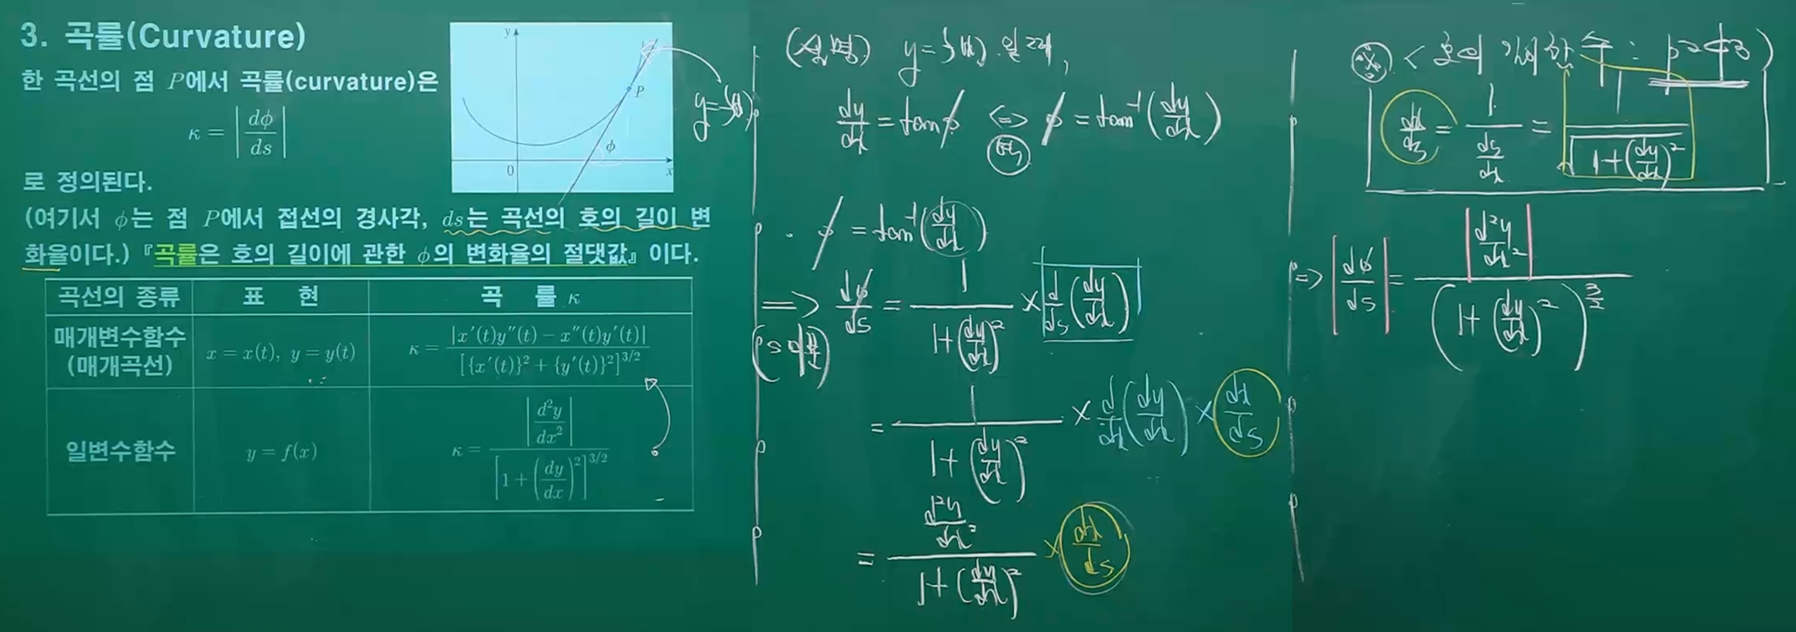 3. 곡률(Curvature)
한 곡선의 점 P에서 곡률(curvature)은
κ = |dφ/ds|
로 정의된다.
(여기서 φ는 점 P에서 접선의 경사각, ds는 곡선의 호의 길이 변
화율이다.) 『곡률은 호의 길이에 관한 φ의 변화율의 절댓값』 이다.
곡선의 종류 표 현 곡 률 κ
매개변수함수
(매개곡선) x = x(t), y = y(t) κ = |x′(t)y″(t) − x″(t)y′(t)| / [{x′(t)}² + {y′(t)}²]^{3/2}
일변수함수 y = f(x) κ = |d²y/dx²| / [1 + (dy/dx)²]^{3/2}
y
P
φ
0
x
y = f(x)
(설명) y = f(x) 일 때,
dy/dx = tanφ <=> φ = tan⁻¹(dy/dx)
· φ = tan⁻¹(dy/dx)
=> dφ/ds = 1/(1+(dy/dx)²) × d/ds(dy/dx)
= 1/(1+(dy/dx)²) × d/dx(dy/dx) × dx/ds
= (d²y/dx²)/(1+(dy/dx)²) × dx/ds
dx/ds = 1/(ds/dx) = 1/√(1+(dy/dx)²)
=> |dφ/ds| = |d²y/dx²| / (1+(dy/dx)²)^{3/2}